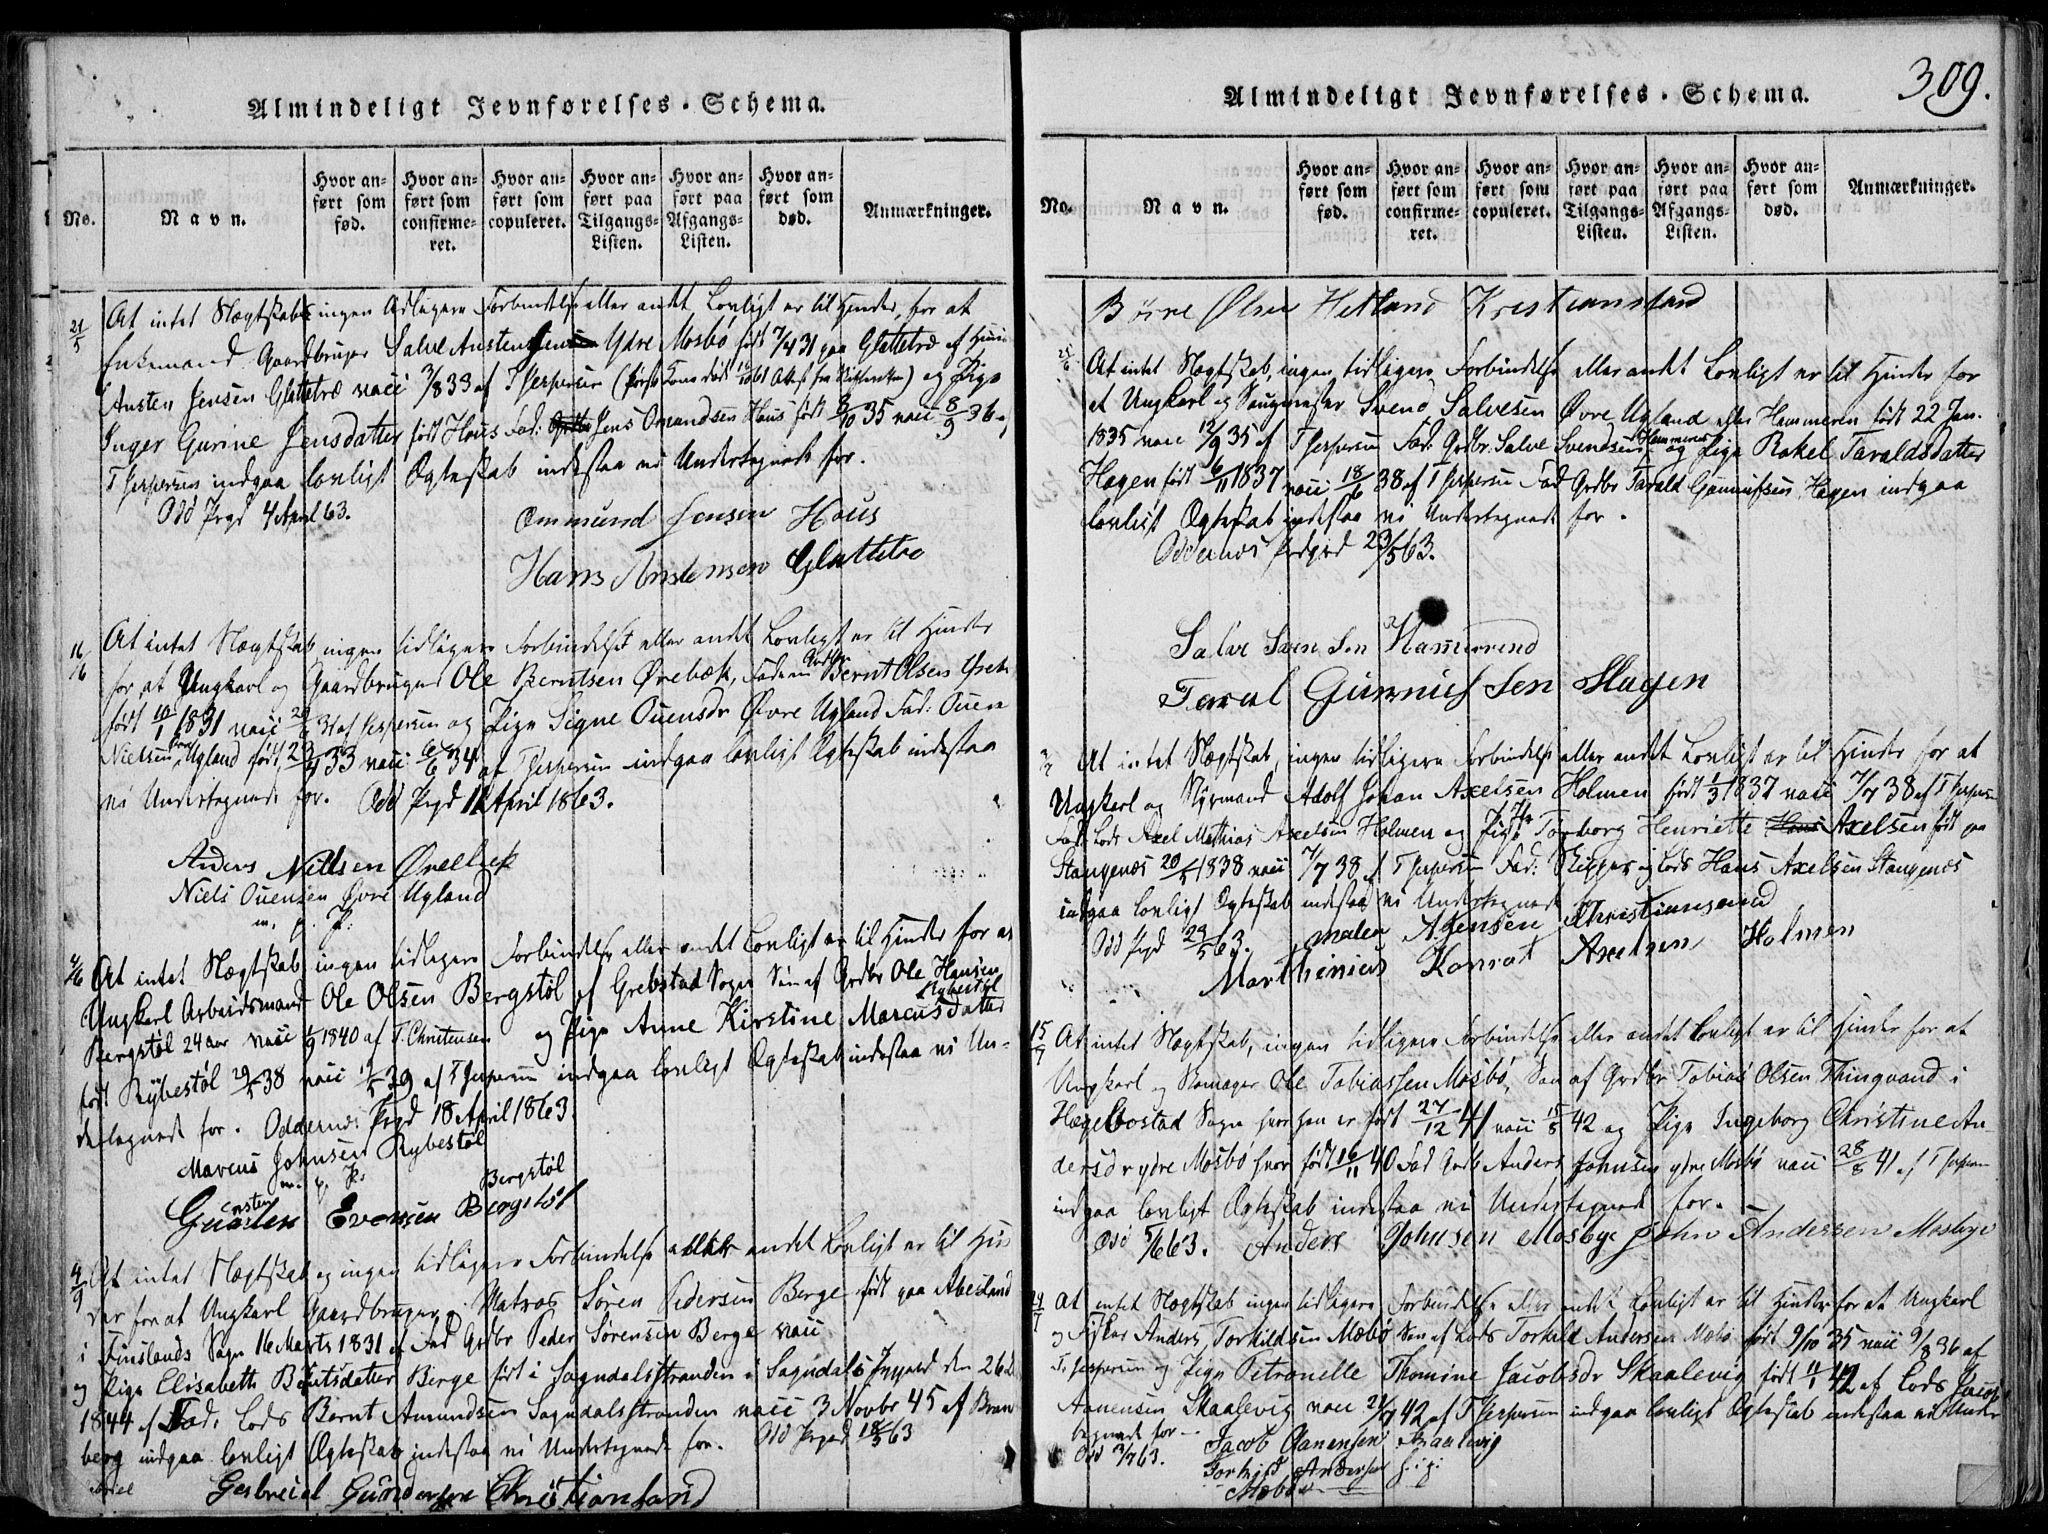 Almindeligt Jevnførelses-Schema.
No.
Navn.
Hvor an-
ført som
fød.
Hvor an-
ført som
confirme-
ret.
Hvor an-
ført som
copuleret.
Hvor an-
ført paa
Tilgangs-
Listen.
Hvor an-
ført paa
Afgangs-
Listen.
Hvor an-
ført som
død.
Anmærkninger.
21/5 At intet Slægtskab, ingen tidligere Forbindelse eller andet Lovligt er til Hinder, for at
Enkemand Gaardbruger Salve Austensen Ydre Mosbø født 7/4 31 paa Glattetræ af Huusm
Austen Jensen Glattetræ vacc 3/8 33 af T Jespersen (første Kone død 1861 Attest fra Skifteretten) og Pige
Inger Gurine Jensdatter født Haus Fad: Jens Omundsen Haus født 8/10 35 vacc 8/9 36 a
T Jespersen indgaa lovligt Ægteskab indestaa vi Undertegnede for.
Odd Prgd 4 April 63.
Ommund Jensen Haus
Hans Austensen Glattetre
16/6 At intet Slægtskab ingen tidligere Forbindelse eller andet Lovligt er til Hinder
for at Ungkarl og Gaardbruger Ole Berntsen Ørebæk, Faderen Grdbr Bernt Olsen Øreb
født 10/1 1831 vacc 31 af Jespersen og Pige Signe Ouensdr Øvre Ugland Fad: Ouen
Nielsen Øvre Ugland født 33 vacc 6/6 34 af T Jespersen indgaa lovligt Ægteskab indestaa
vi Undertegnede for. Odd Prgd 11 April 1863.
Anders Nillsen Ørellbek
Niels Ouensen Øvre Ugland
m. p. P.
At intet Slægtskab ingen tidligere Forbindelse eller andet Lovligt er til Hinder for at
Ungkarl Arbeidsmand Ole Olsen Bergstøl af Grebstad Sogn Søn af Grdbr Ole Hansen
Bergstøl 24 aar vacc 1/9 1840 af T. Christensen og Pige Anne Kirstine Marcusdatter Rybestøl
født Rybestøl 29 38 vacc 39 af T Jespersen indgaa lovligt Ægteskab indestaa vi Un-
dertegnede for. Oddernes Prgd 18 April 1863.
Marcus Johnsen Rybestøl
m. p. P.
Gunsten Evensen Bergstøl
Bergstøl
4/9 At intet Slægtskab og ingen tidligere Forbindelse eller andet Lovligt er til Hin
der for at Ungkarl Gaardbruger og Matros Sören Pedersen Berge født paa Abesland
i Finslands Sogn 16 Marts 1831 af Fad Grdbr Peder Sørensen Berge vacc
og Pige Elisabeth Berntsdatter Berge født i Sogndalsstranden i Sogndals Prgjeld den 26
1844 af Fad. Lods Bernt Amundsen Sogndalsstranden vacc 3 Novbr 45 af Bran
berg indgaa lovligt Ægteskab indestaa vi Undertegnede for. Odd Prgd 18/5 63
Gesbreiel Gundersen Christiansand
309.
Almindeligt Jevnførelses-Schema.
No.
Navn.
Hvor an-
ført som
fød.
Hvor an-
ført som
confirme-
ret.
Hvor an-
ført som
copuleret.
Hvor an-
ført paa
Tilgangs-
Listen.
Hvor an-
ført paa
Afgangs-
Listen.
Hvor an-
ført som
død.
Anmærkninger.
Børre Ølsen Hetland Kristiansand
At intet Slægtskab, ingen tidligere Forbindelse eller andet Lovligt er til Hinder for
at Ungkarl og Saugmester Svend Salvesen Øvre Ugland eller Hammeren født 22 Jan.
1835 vacc 12/9 35 af T Jespersen Fad. Grdbr. Salve Svendsen Hammeren og Pige Rakel Taraldsdatter
Hagen født 6/11 1837 vacc 18/6 38 af T Jespersen Fad Grdbr Tarald Gunnufsen Hagen indgaa
lovligt Ægteskab indestaa vi Undertegnede for.
Oddernes Prdgrd 23/5 63.
Salve Sven Sen Hamerend
Taral Gunnuf Sen Hagen
3/7 At intet Slægtskab, ingen tidligere Forbindelse eller andet Lovligt er til Hinder for at
Ungkarl og Styrmand Adolf Johan Axelsen Holmen født 1/3 1837 vacc 7/7 38 af T Jespersen
Fad: Lods Axel Mathias Axelsen Holmen og Pige Torborg Henriette Axelsen født paa
Stangenæs 20 1838 vacc 7/7 38 af T Jespersen Fad: Skipper og Lods Hans Axelsen Stangenæs
indgaa lovligt Ægteskab indestaa vi Undertegnede for
Odd Prgd 29/5 63. Axensen Christiansand
Marthinius Konrat Axelsen Holmen
15/7 At intet Slægtskab, ingen tidligere Forbindelse eller andet Lovligt er til Hinder for at
Ungkarl og Skomager Ole Tobiassen Mosbø, Søn af Grdbr Tobias Olsen Thingvand i
Hægebostad Sogn hvor han er født 27/12 41 vacc 15/8 42 og Pige Ingeborg Christine An-
dersdr ydre Mosbø hvor født 16/11 40 Fad Grdb Anders Johnsen ydre Mosbø vacc 28/8 41 af T Jespersen
indgaa lovligt Ægteskab indestaa vi Undertegnede for.
Odd 5/6 63. Anders Johnsen Mosbye John Andersen Mosbye
24/7 At intet Slægtskab ingen tidligere Forbindelse eller andet Lovligt er til Hinder for at Ungkarl
og Fisker Anders Torkildsen Mæbø Søn af Lods Torkild Andersen Mæbø født 9/10 35 vacc 9/8 36 af
T. Jespersen og Pige Petronelle Thomine Jacobsdr Skaalevig født 11/1 42 af Lods Jacob
Aanensen Skaalevig vacc 21/7 42 af T Jespersen indgaa lovligt Ægteskab indestaa vi Under
tegnede for
Odd 3/7 63. Jacob Aanensen Skaalevig
Torkild Andersen
Mæbø